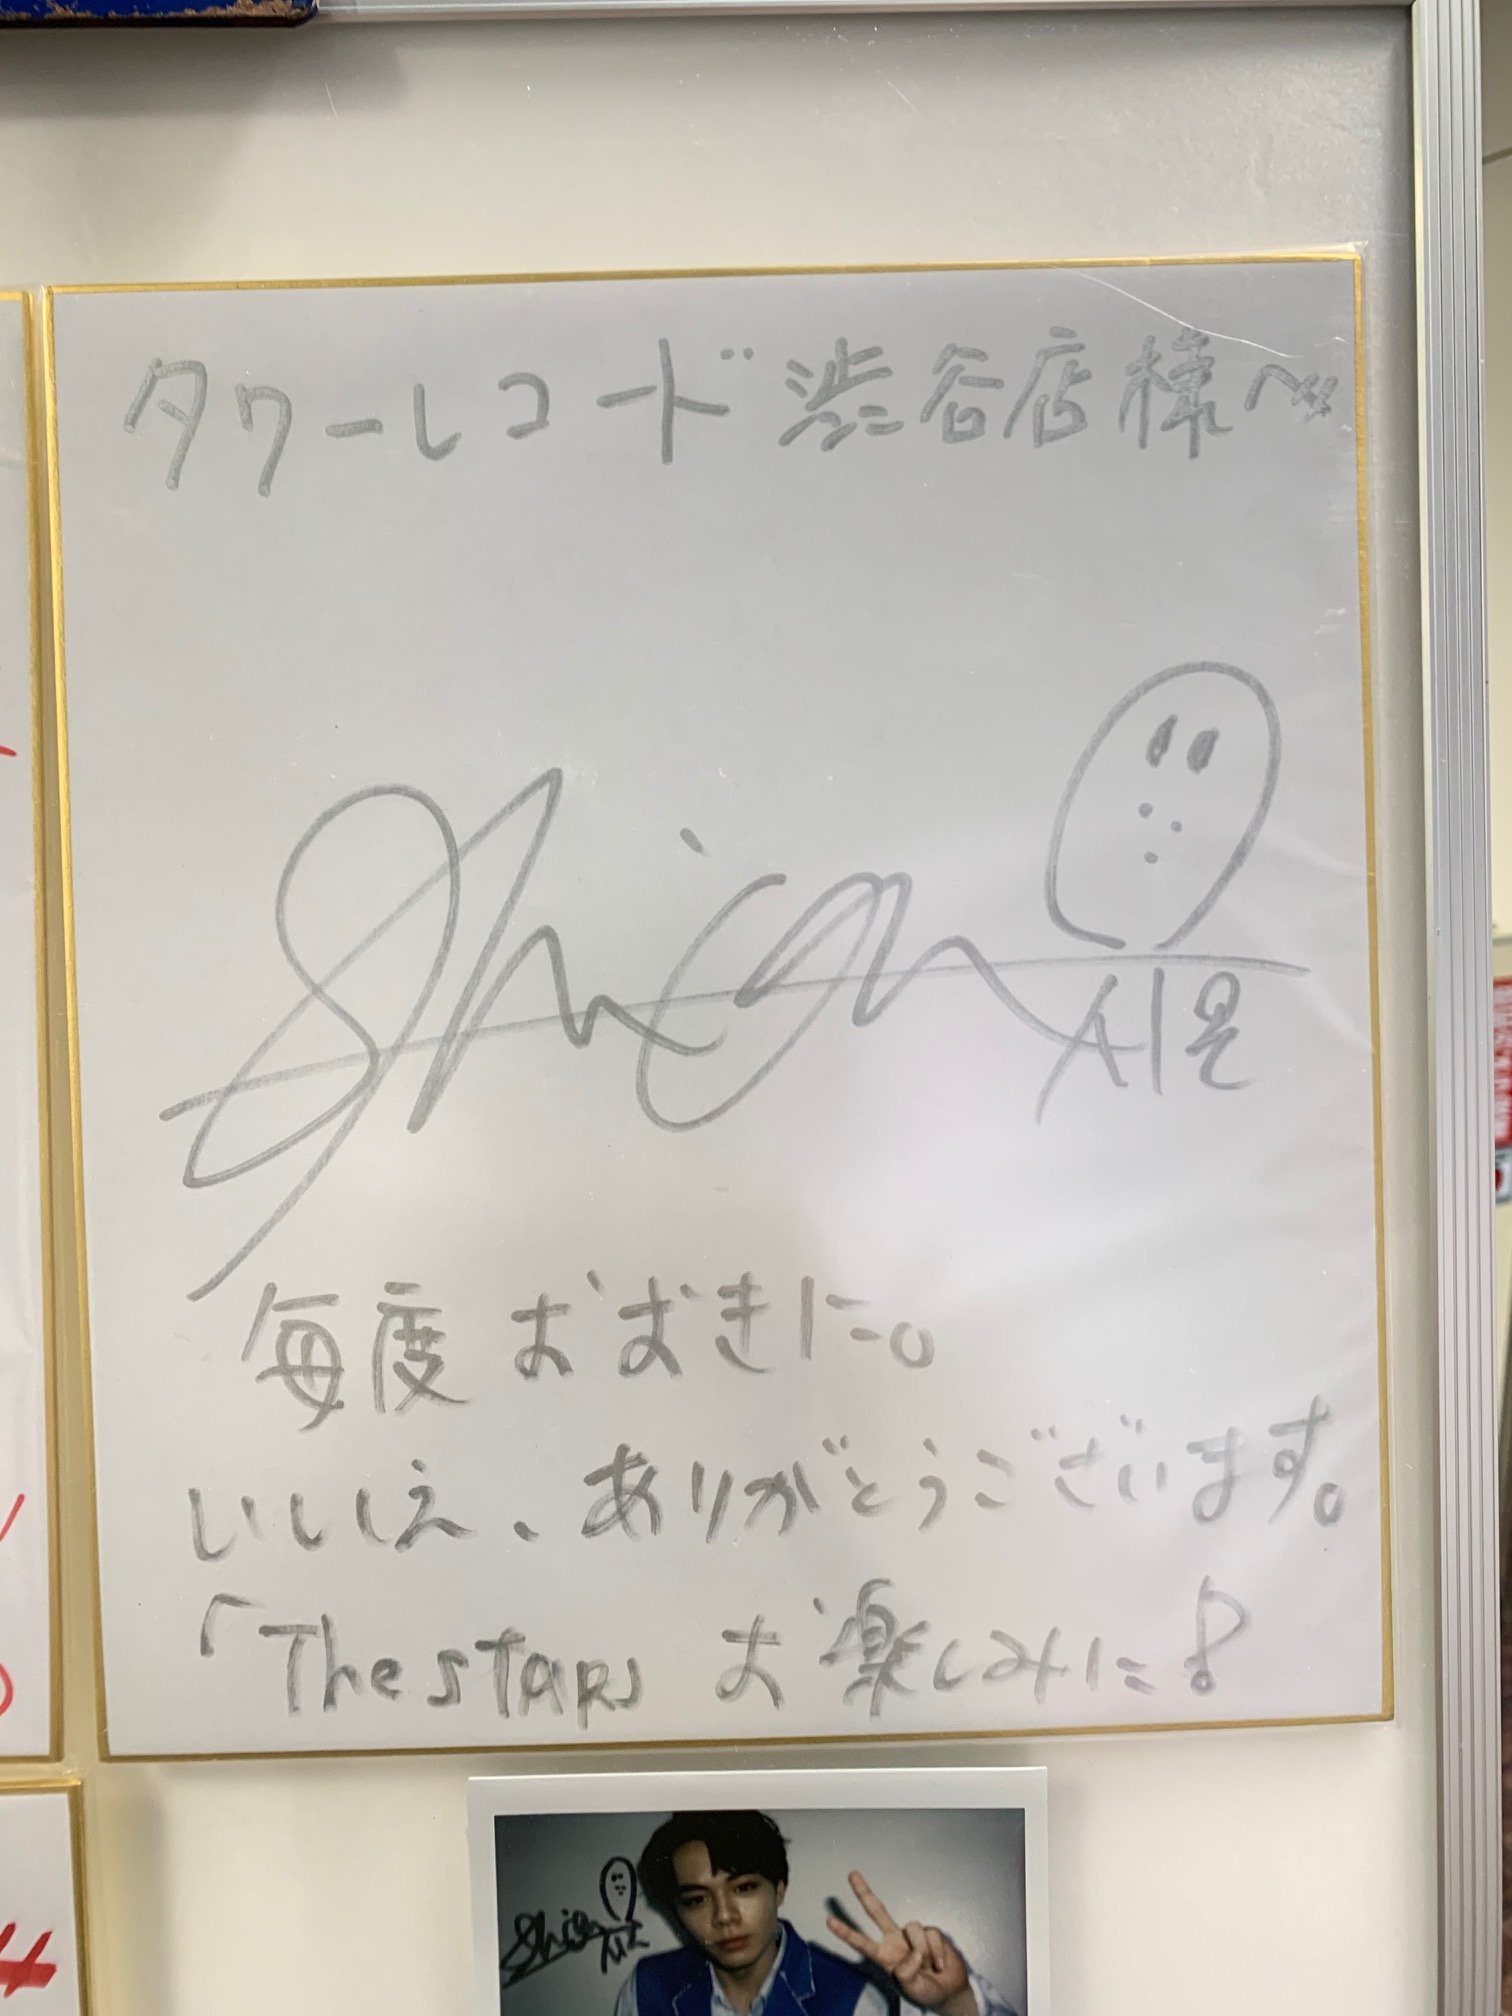 タワーレコード渋谷店様へ
Shion
시온
毎度おおきに。
いいえ、ありがとうございます。
「The STAR」お楽しみに!
Shion
시온